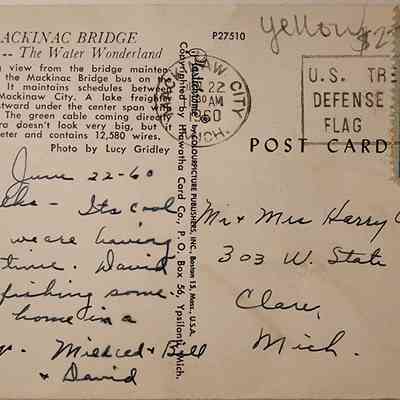 ACKINAC BRIDGE
-- The Water Wonderland
view from the bridge mainten
the Mackinac Bridge bus on the
It maintains schedules between
Mackinaw City. A lake freigh
stward under the center span w
The green cable coming direct
ra doesn't look very big, but
eter and contains 12,580 wires.
Photo by Lucy Gridley
June 22-60
ks - Its cool
we are having
time. David
fishing some.
home in a
Mildred & Bill
& David
Plastichrome® by COLOURPICTURE PUBLISHERS, INC., Boston 15, Mass., U.S.A.
Copyrighted by Hiawatha Card Co., P. O. Box 56, Ypsilanti, Mich.
P27510
yellow $2
AW CITY
22
30 AM
60
MICH.
U.S. TRE
DEFENSE
FLAG
POST CARD
Mr & Mrs Harry
303 W. State
Clare,
Mich.